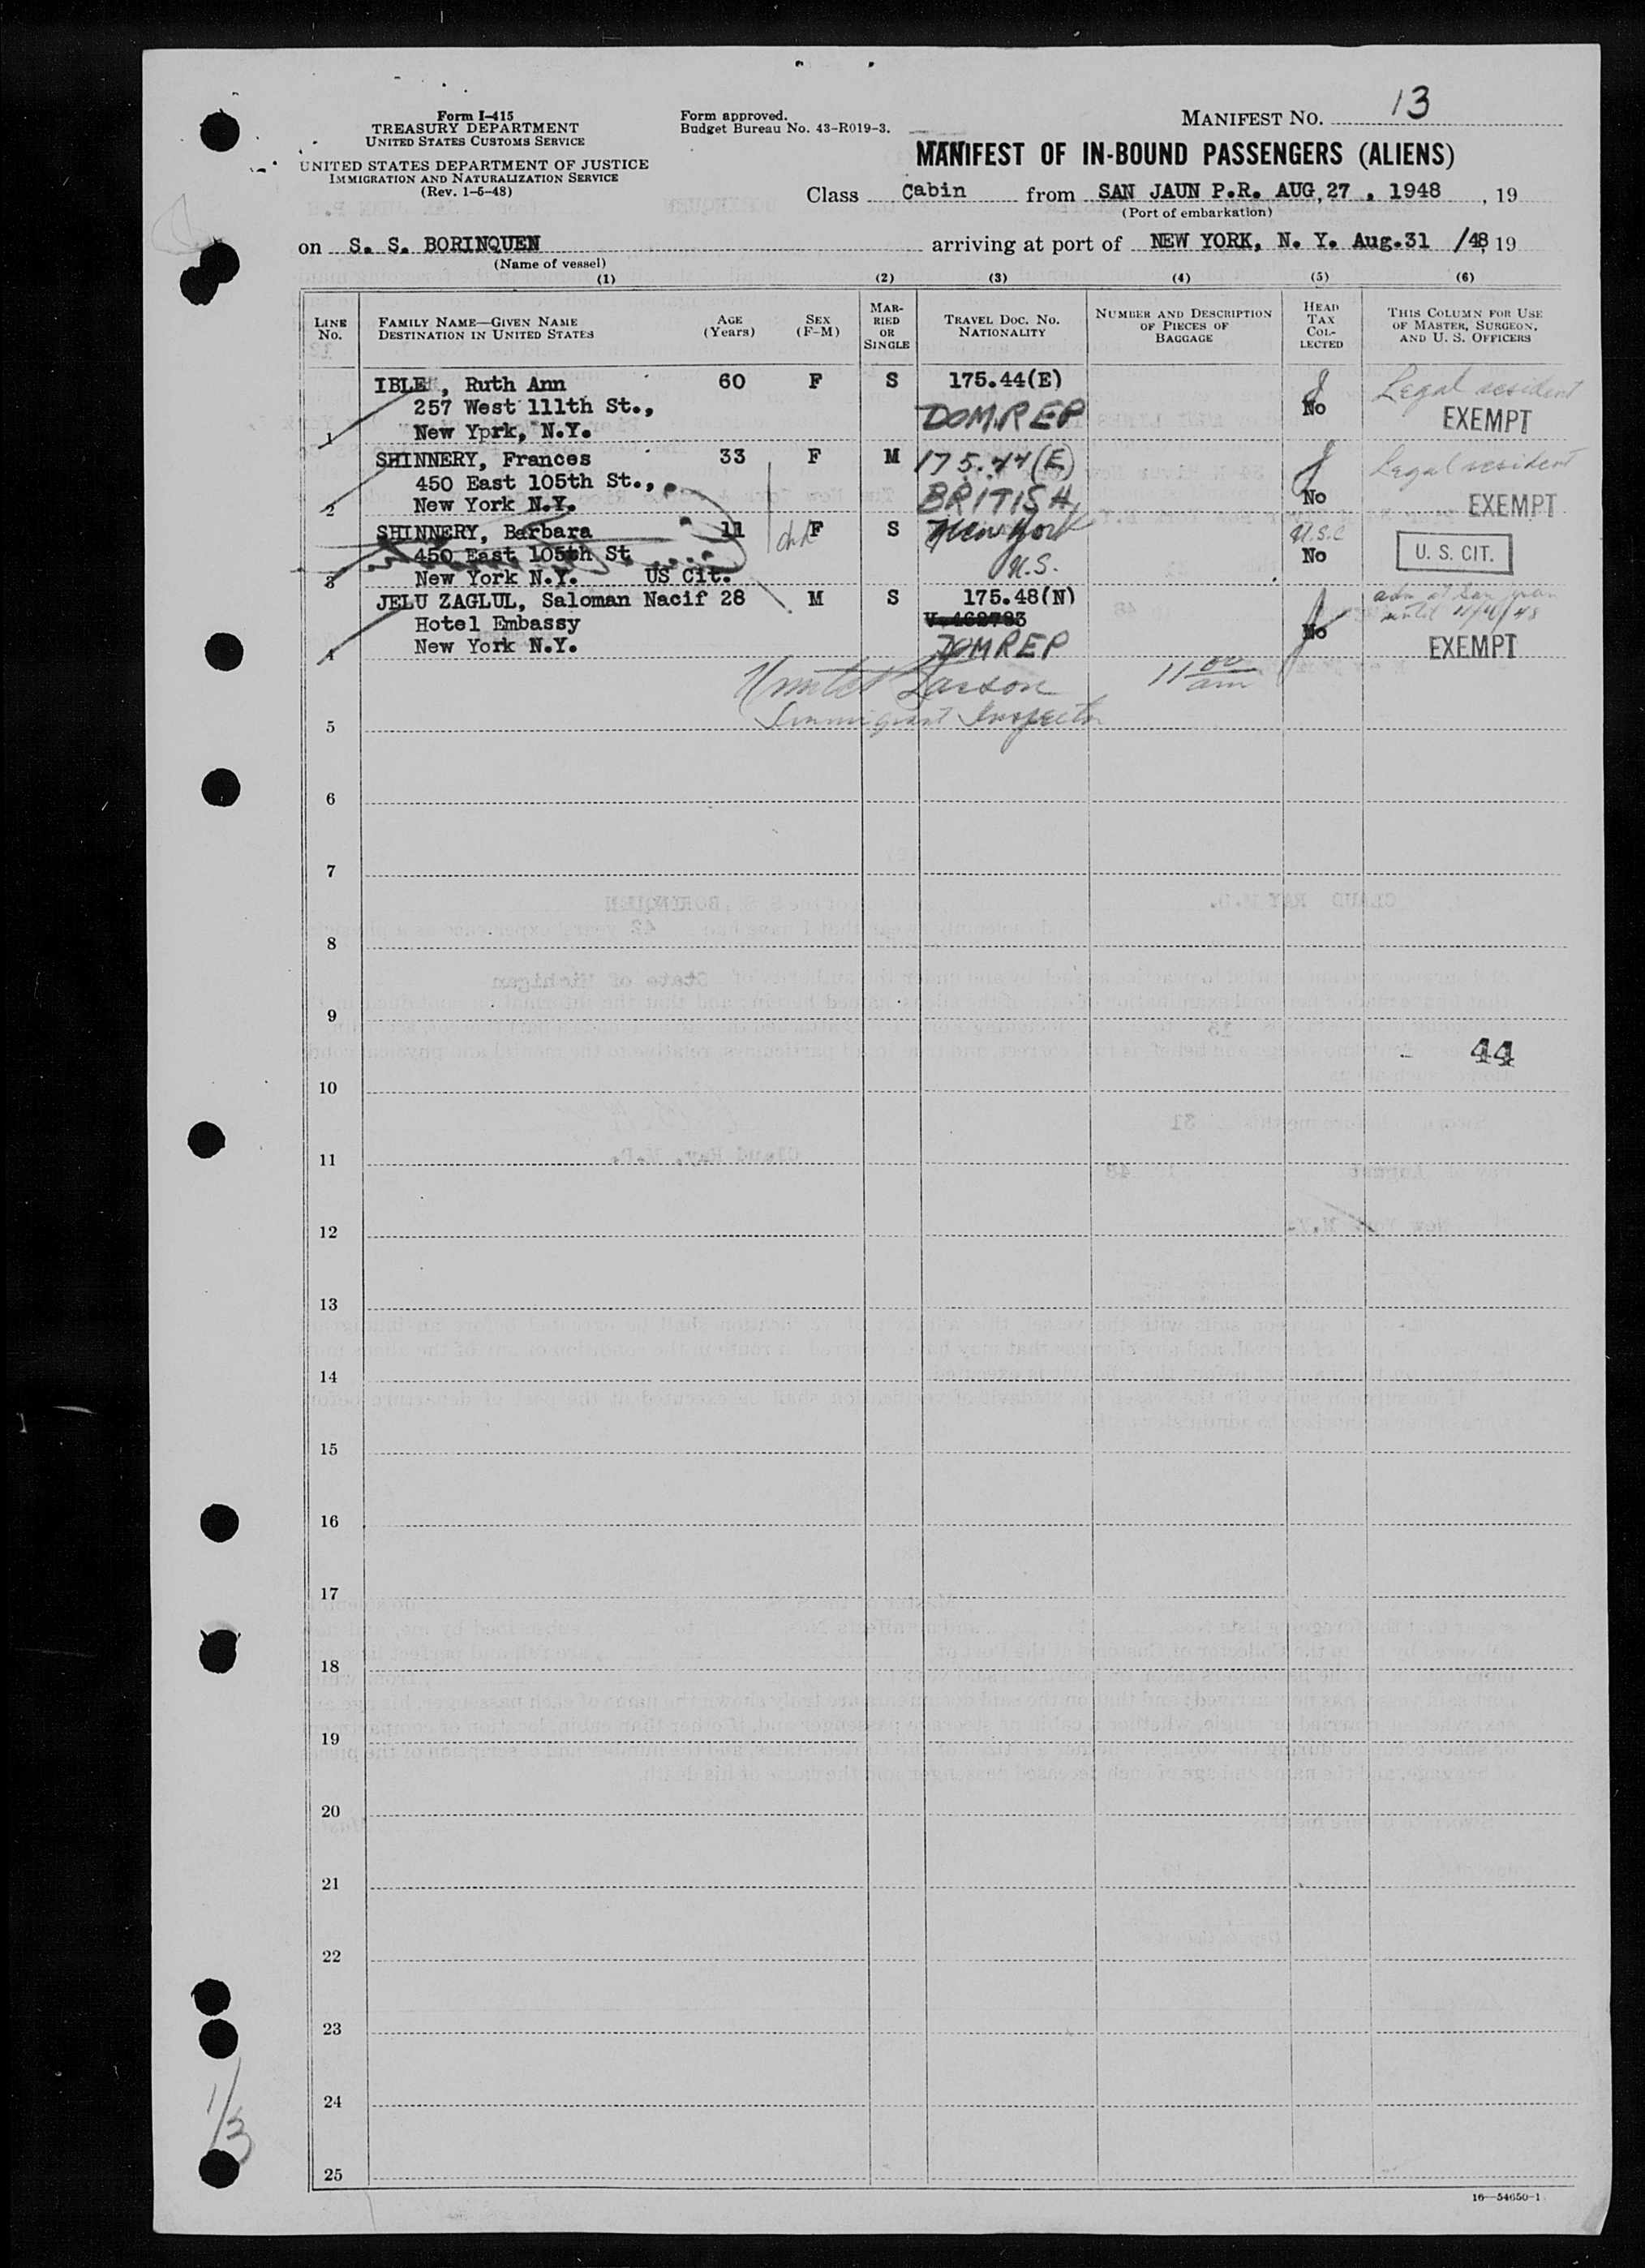 Form I-415
TREASURY DEPARTMENT
UNITED STATES CUSTOMS SERVICE
UNITED STATES DEPARTMENT OF JUSTICE
IMMIGRATION AND NATURALIZATION SERVICE
(Rev. 1-5-48)
Form approved.
Budget Bureau No. 43-R019-3.
MANIFEST NO. 13
MANIFEST OF IN-BOUND PASSENGERS (ALIENS)
Class Cabin from SAN JAUN P.R. AUG,27 , 1948 , 19
(Port of embarkation)
on S. S. BORINQUEN arriving at port of NEW YORK, N. Y. Aug.31 /48, 19
(Name of vessel)
(1) (2) (3) (4) (5) (6)
LINE No. FAMILY NAME—GIVEN NAME DESTINATION IN UNITED STATES AGE (Years) SEX (F-M) MARRIED OR SINGLE TRAVEL DOC. NO. NATIONALITY NUMBER AND DESCRIPTION OF PIECES OF BAGGAGE HEAD TAX COLLECTED THIS COLUMN FOR USE OF MASTER, SURGEON, AND U. S. OFFICERS
IBLE , Ruth Ann 60 F S 175.44(E) Legal resident
257 West 111th St., DOM.REP No EXEMPT
1 New Yprk, N.Y.
SHINNERY, Frances 33 F M 175.44(E) Legal resident
450 East 105th St.,
2 New York N.Y. BRITISH No EXEMPT
SHINNERY, Barbara 11 F S New York U.S.C
450 East 105th St No U. S. CIT.
3 New York N.Y. US Cit. U.S.
JELU ZAGLUL, Saloman Nacif 28 M S 175.48(N) adm at San Juan
Hotel Embassy V-462783 until
4 New York N.Y. DOMREP No EXEMPT
Larson 11 00 am
Immigrant Inspector
5
6
7
8
9
44
10
11
12
13
14
15
16
17
18
19
20
21
22
23
24
25
1/3
16—54650-1